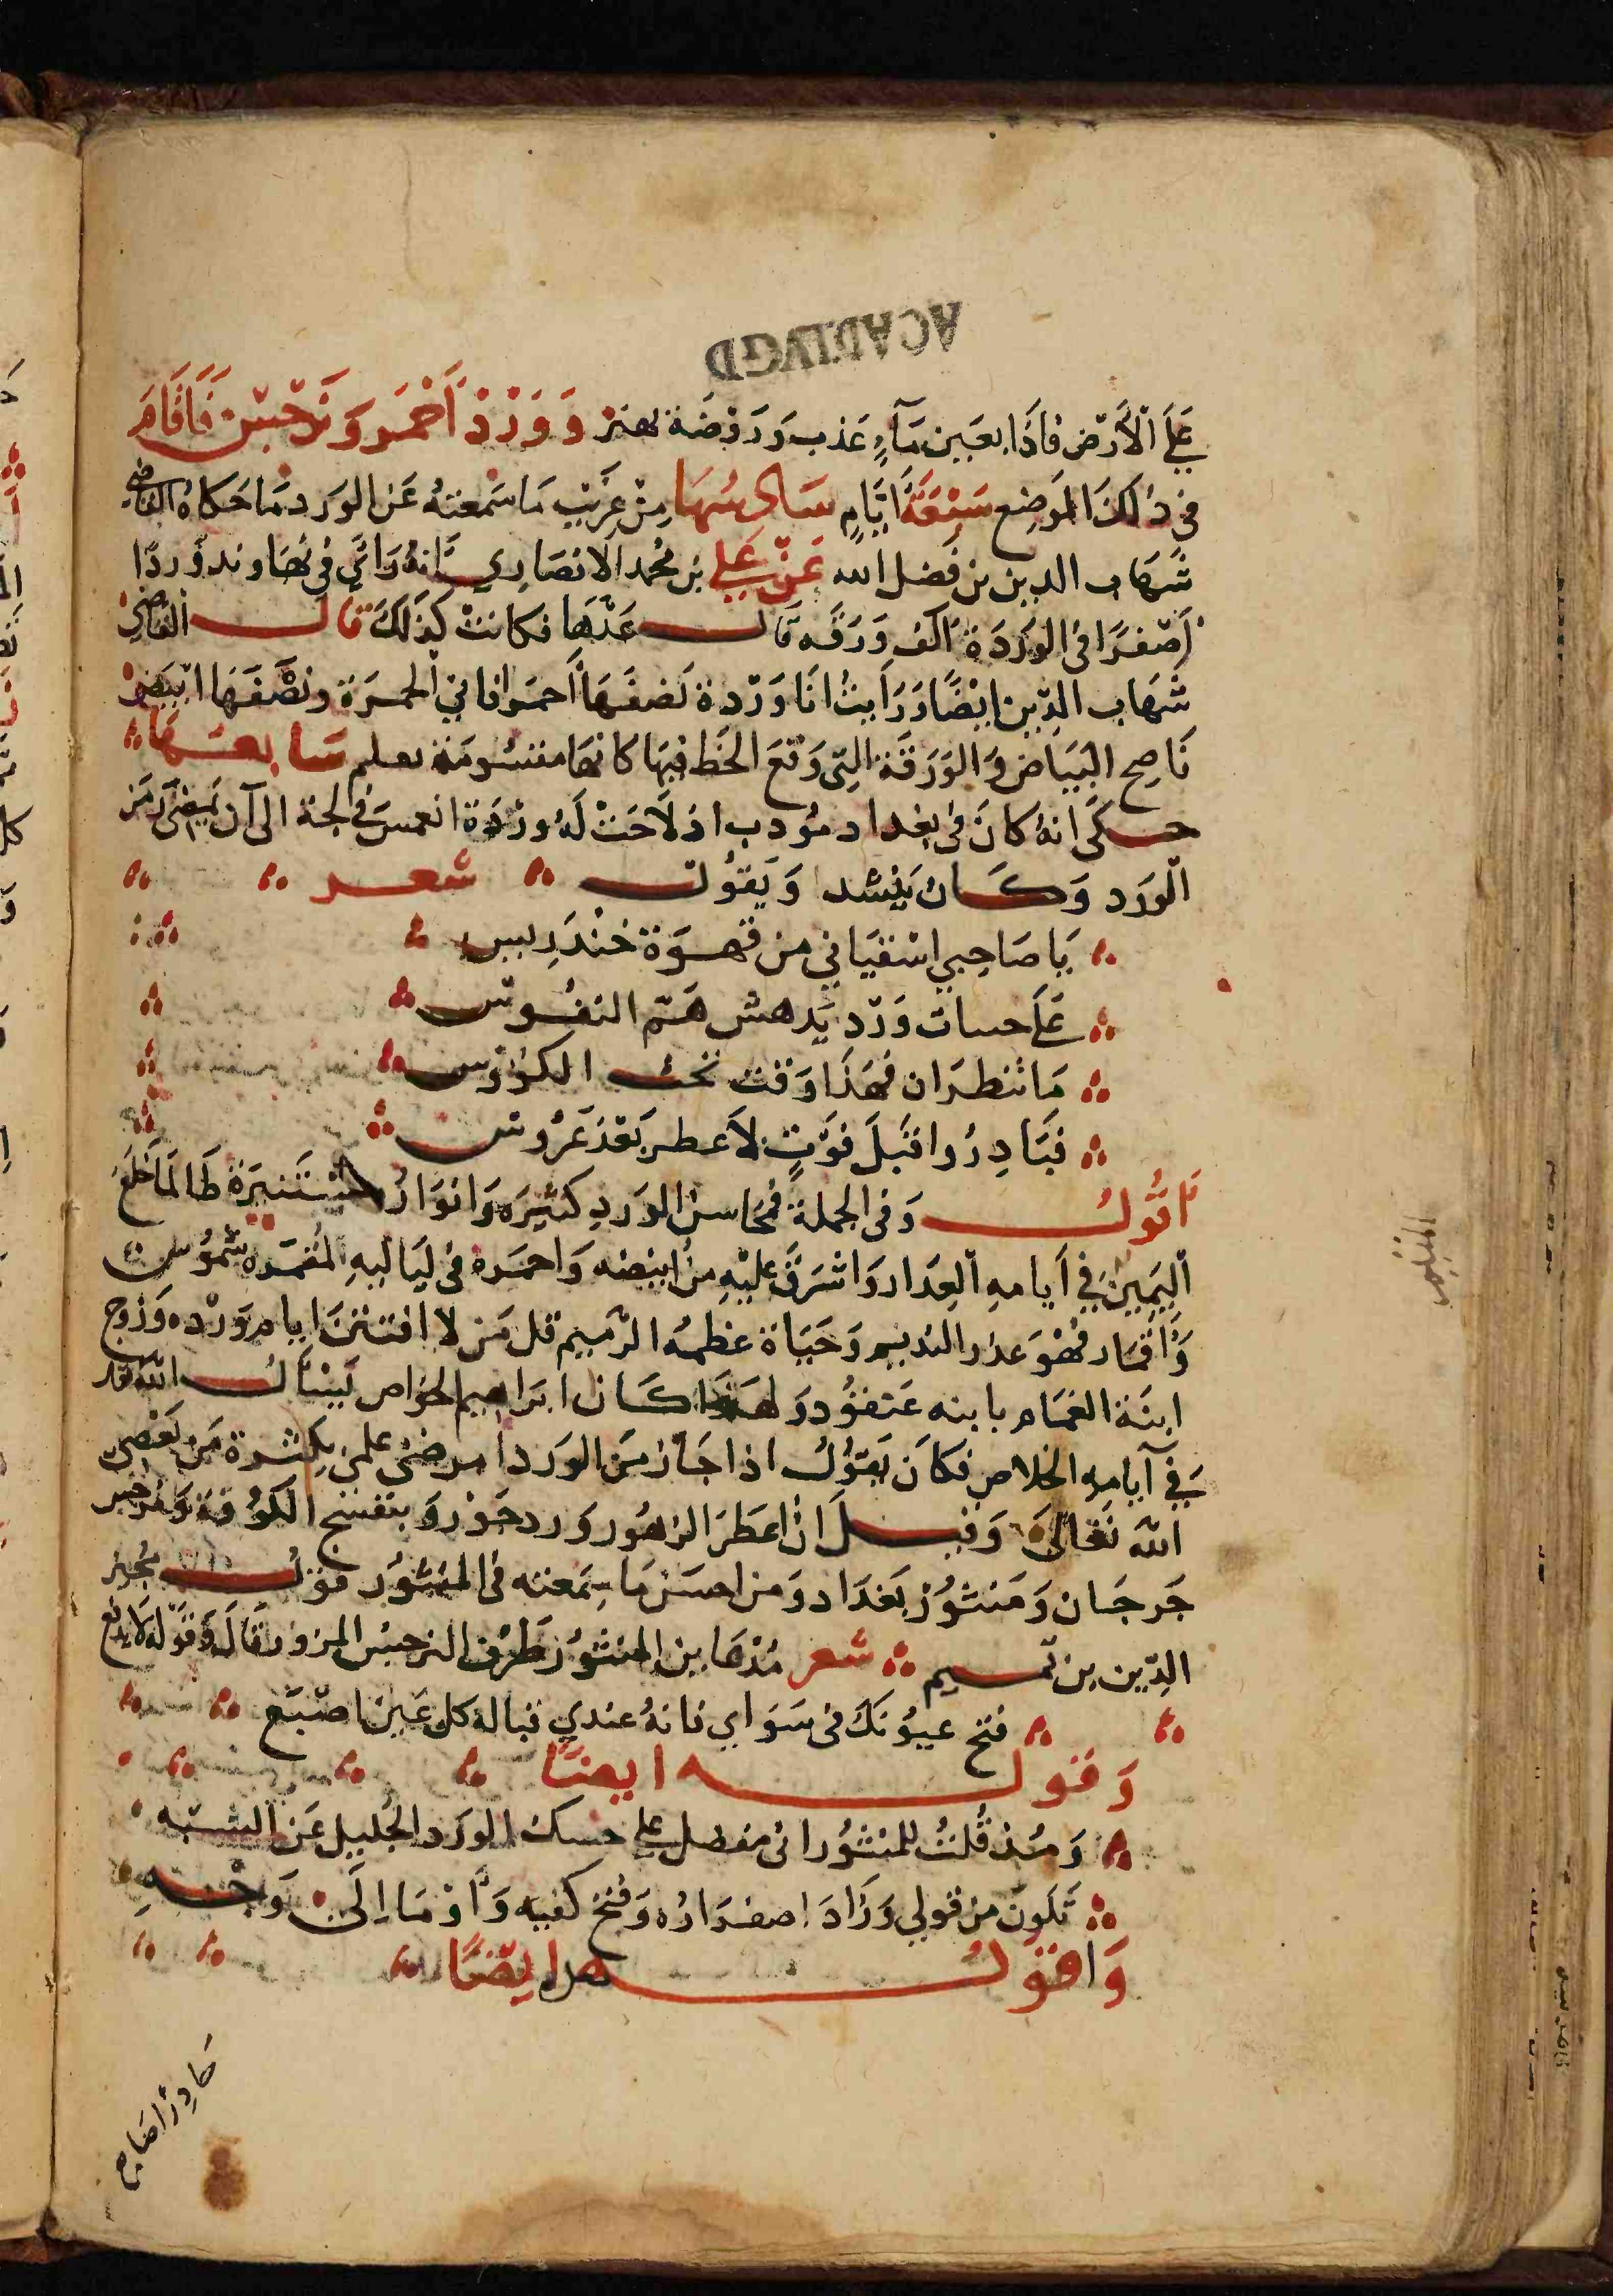 ACAD LVGD
عَلَى الْأَرْضِ فَاذَا بعَين مَآءٍ عَذب وَرَوْضَة تهتز وَوَرْدْ اَحْمَر وَنَرْجِسْ فَاَقَامَ
فى ذلكَ الموَضِع سَبْعَة اَيَّامٍ سَادسُهَا مِنْ غرَيب مَا سَمعتهُ عَن الوَرد مَا حَكاهُ القاضى
شَهَاب الدين بن فَضل الله عَنْ عَلى بن محُمد الانصَاري اَنهُ رَأى فى نهَاوند وَردًا
اَصْفرَا فى الوَرَدَة اَلف وَرَقَه قَالـــ عَدّهَا فكانتْ كَذلكَ قالــــ القاضى
شَهَاب الدّين ايْضًا وَرَايتُ انَا وَرْدة نَصفَهَا اَحمَر قانى الحمَرة ونصْفَهَا ابْيَض
نَاصِح البَيَاض وَ الوَرَقَة التى وَقعَ الخَط فيهَا كانهَا مقسُومَة بعلم سَابعَـهَا
حـكى انهُ كانَ فى بغداد مؤدب اذ لاَحَتْ لَهُ ورْدَة انغمسَ فى لجة الى آن يَمضى زمَن
الوَرد وَكَـان يَنشد وَيَقولـــ شعــر
يَا صَاحِبي اسْقيَاني من قهـوَة خنْدَرِيس
عَلى حسات وَرْد يَدهش هَـم النفـوس
مَا تنظرَان فهَذَا وَقت تحـث الكؤوس
فبَادِرُوا قبَلَ فوْتٍ لاَ عطـر بَعْدَ عَرُوسـ
اقولـــــ وَفى الجملة فمَحَاسن الوَردِ كثيرَه وَانوَارُه مستَنيرَة طَالمَا خلَعَ
اليَمين في اَيامهِ العِدَار وَاشرَقَ عليْهِ من ابْيضه وَاحمَره فى ليَاليهِ المُقمَرَه شمُوس
وَاَقمَار فهْوَ عدر النديم وَحَيَاة عظمهُ الرّميم قل مَن لا افتتنَ ايام وَرْده وَزوج
ابنَة الغمَام بابنه عَنقوُد وَلهَذَا كـَان ابرَاهيم الخوَاص يَسْئَالـــ الله
في آيامِهِ الخلاص فكَانَ يَقوُلُ اذا جَآءَ زمَن الوَرد امرضنى علمى بِكثـرة مَن يَعْصِى
اللهَ تعَالىَ وَقيـــلَ انْ اعَطَرَ الزهُور وَرد جَوْر وَ بنفسَج الكوُفة وَنَرجس
جَرجـَان وَمَنثوُرْ بَغدَاد وَمن احسَن مَا سَمِعته فى المنثوُر قوَلـــ مُجير
الدّين بن تمـيم شعر مُذهَا بن المنثوُر طَرْف النرجس المزور قالَ وَقوْله لاَ يدفع
فتح عيوُنكَ فى سَوَاي فانهُ عندي قبالة كل عَين اصْبَع
وَقولــــه ايضاً
وَمُذ قُلتُ للمنثوُر انى مفضل على حسنك الوَرد الجْليل عَن الشبَه
تَلَونَ من قولي وَزَادَ اصفرَارُه وَفتح كفيه وَاَوْمَا اِلَى وَجْهـهِ
وَاقوْلــــ هر ايضًا